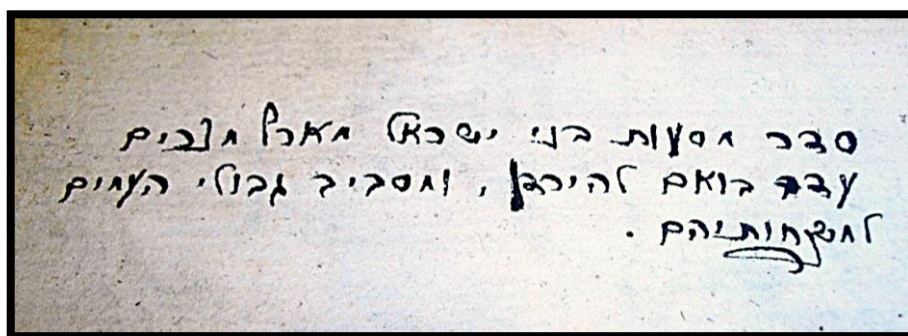 סדר מסעות בני ישראל מארץ מצרים
עד בואם להירדן, ומסביב גבולי העמים
למשפחותיהם.